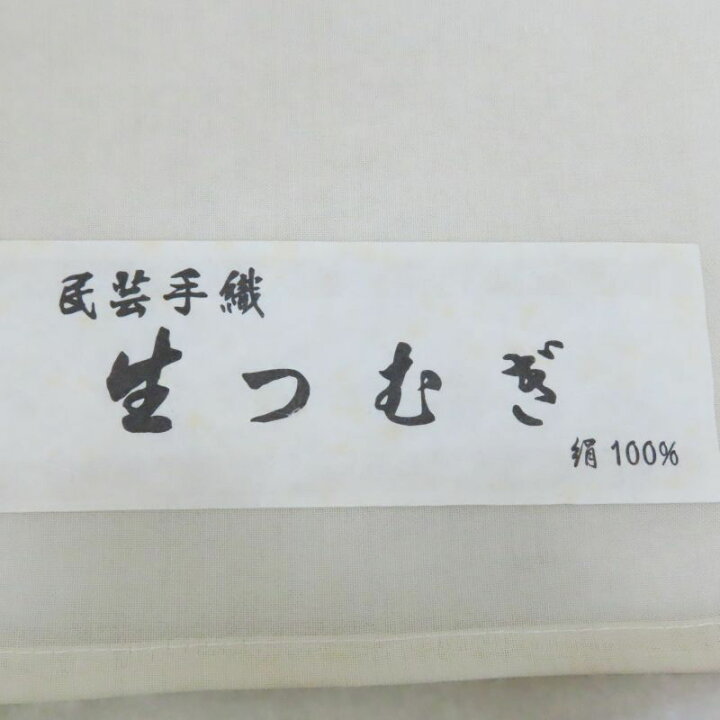 民芸手織
生つむぎ
絹100%